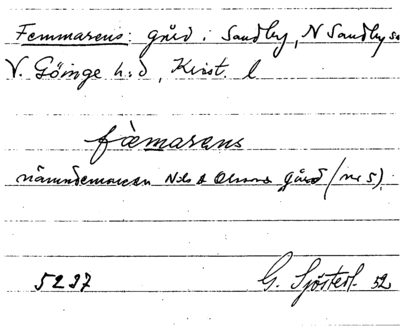 Femmarens: gård i Sandby, N Sandby sn
V. Göinge h:d, Krist. l
fæmarens
nämndemannen Nils Olssons gård (nr 5).
5237 G. Sjöstedt 52